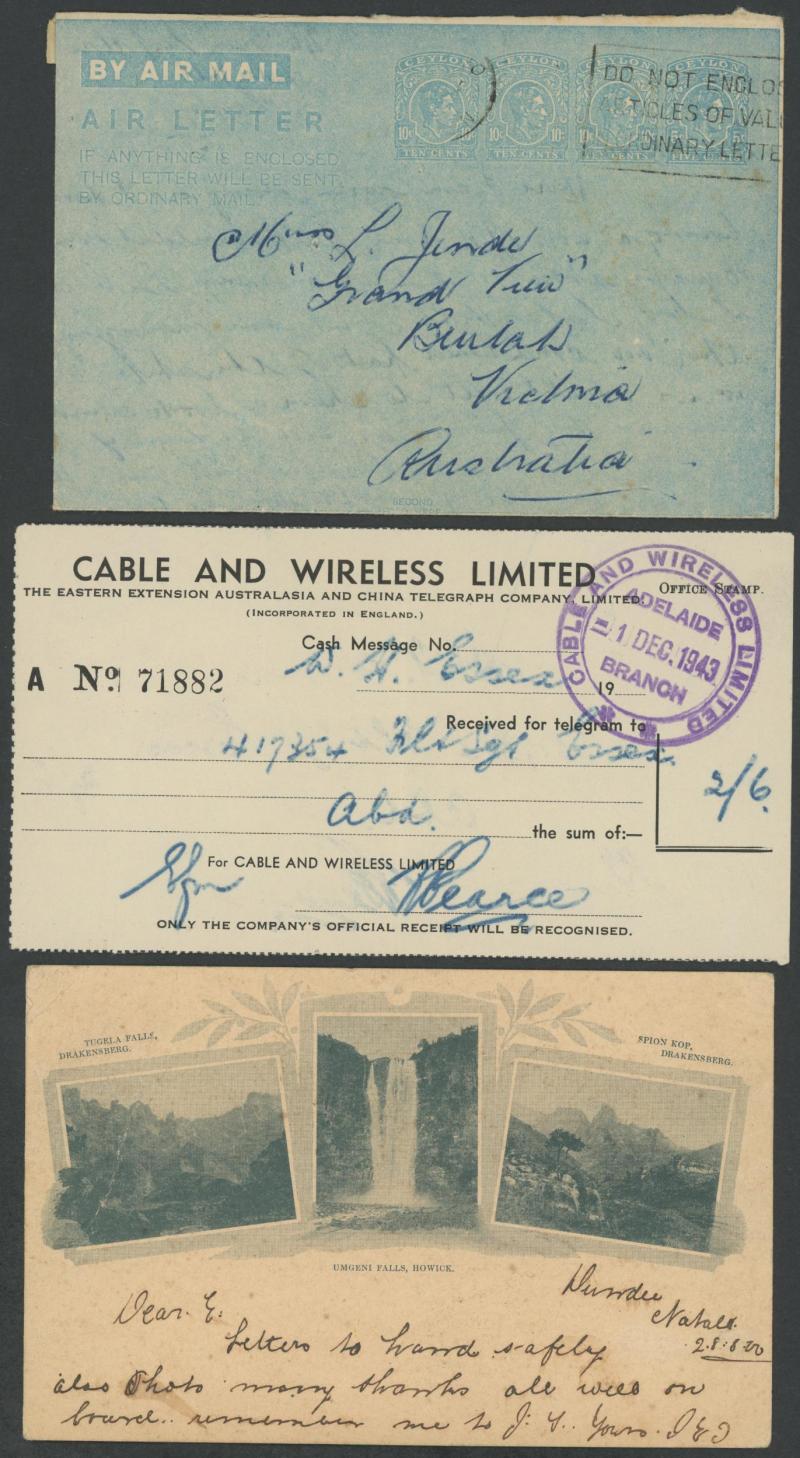 BY AIR MAIL
AIR LETTER
IF ANYTHING IS ENCLOSED
THIS LETTER WILL BE SENT
BY ORDINARY MAIL.
CEYLON CEYLON CEYLON CEYLON
10c 10c 10c 10c 10c 5c 5c
TEN CENTS TEN CENTS TEN CENTS CENTS
DO NOT ENCLOS
ARTICLES OF VALU
ORDINARY LETTE
L. Jende
"Grand View"
Beulah
Victoria
Australia
SECOND
CABLE AND WIRELESS LIMITED
THE EASTERN EXTENSION AUSTRALASIA AND CHINA TELEGRAPH COMPANY, LIMITED.
(INCORPORATED IN ENGLAND.)
OFFICE STAMP.
CABLE AND WIRELESS LIMITED
ADELAIDE
1 DEC. 1943
BRANCH
Cash Message No.
W. H. Essex
A No. 71882
19
Received for telegram to
417354 Flt Sgt Essex
2/6.
Abd.
the sum of:—
For CABLE AND WIRELESS LIMITED
Pearce
ONLY THE COMPANY'S OFFICIAL RECEIPT WILL BE RECOGNISED.
TUGELA FALLS,
DRAKENSBERG.
SPION KOP,
DRAKENSBERG.
UMGENI FALLS, HOWICK.
Dundee
Natal.
28.8.00
Dear E:
Letters to hand safely
also Photo many thanks all well on
board. remember me to J. Yours.